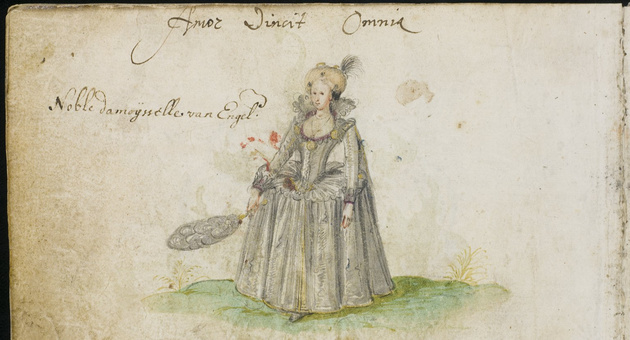 Amor Vincit Omnia
Noble damoÿsselle van Engel.